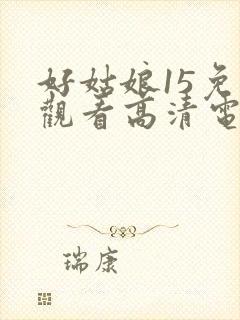 好姑娘15免
觀看高清電
瑞康